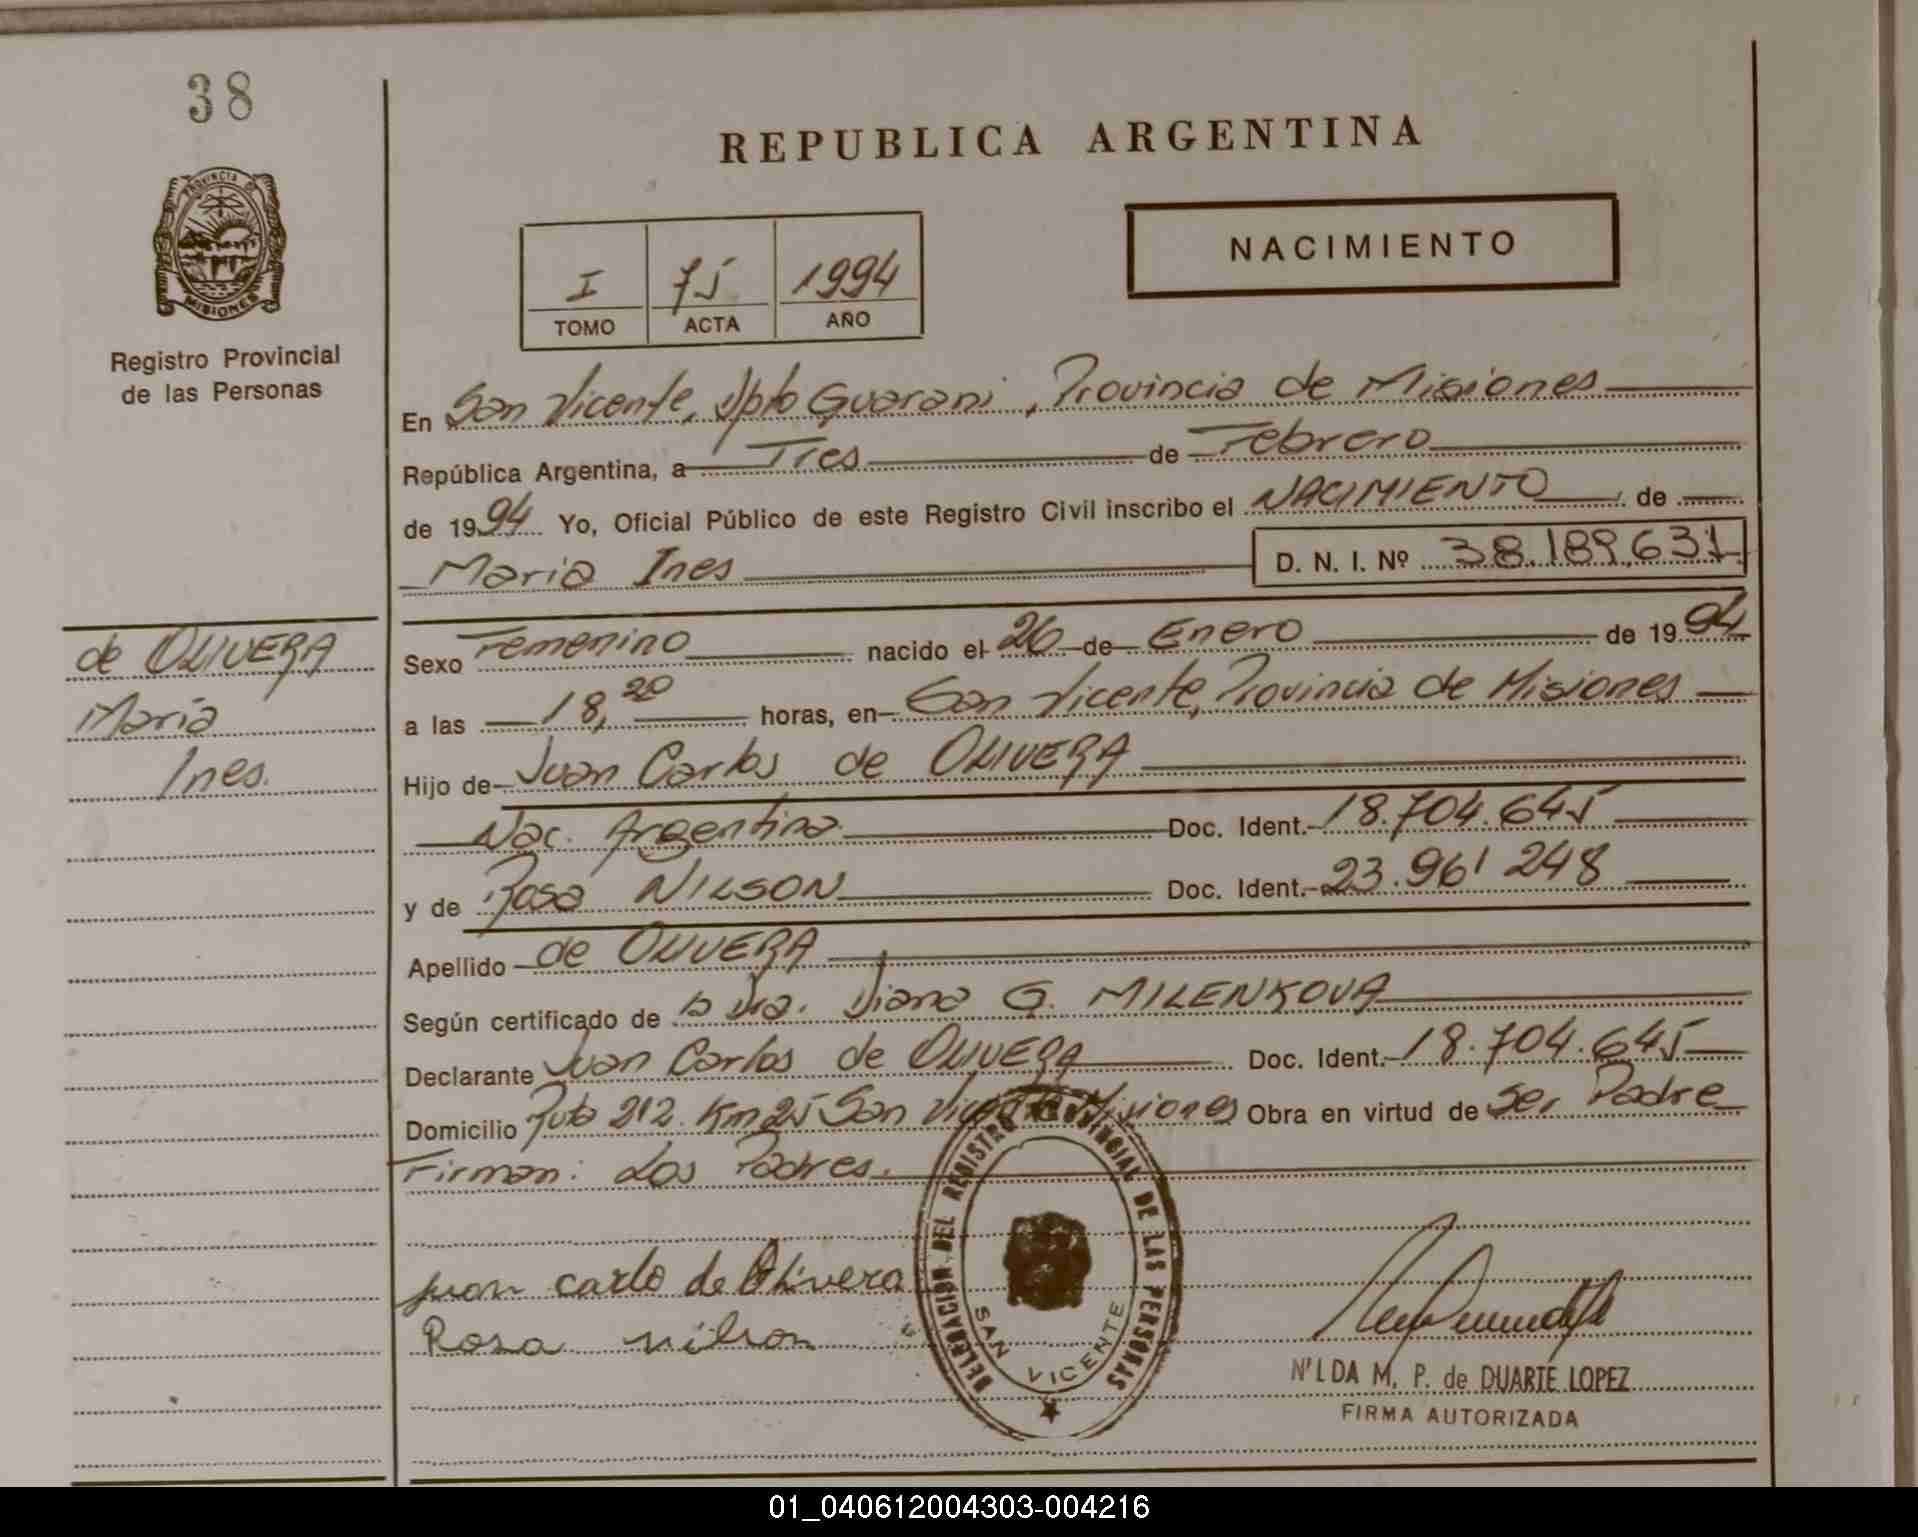 38
REPUBLICA ARGENTINA
PROVINCIA DE
MISIONES
Registro Provincial
de las Personas
NACIMIENTO
I 75 1994
TOMO ACTA AÑO
En San Vicente, Dpto Guarani, Provincia de Misiones
República Argentina, a Tres de Febrero
de 1994 Yo, Oficial Público de este Registro Civil inscribo el NACIMIENTO de
Maria Ines D. N. I. Nº 38.189.631
de OLIVERA
Maria
Ines.
Sexo Femenino nacido el 26 de Enero de 1994
a las 18,20 horas, en San Vicente, Provincia de Misiones
Hijo de Juan Carlos de OLIVERA
Nac. Argentina Doc. Ident. 18.704.645
y de Rosa NILSON Doc. Ident. 23.961 248
Apellido de OLIVERA
Según certificado de la Dra. Diana G. MILENKOVA
Declarante Juan Carlos de OLIVERA Doc. Ident. 18.704.645
Domicilio Ruta 212. Km 25 San Vicente Misiones Obra en virtud de Ser Padre
Firman: Los Padres.
DELEGACION DEL REGISTRO PROVINCIAL DE LAS PERSONAS
SAN VICENTE
juan carlo de Olivera
Rosa nilson
NILDA M. P. de DUARTE LOPEZ
FIRMA AUTORIZADA
01_040612004303-004216